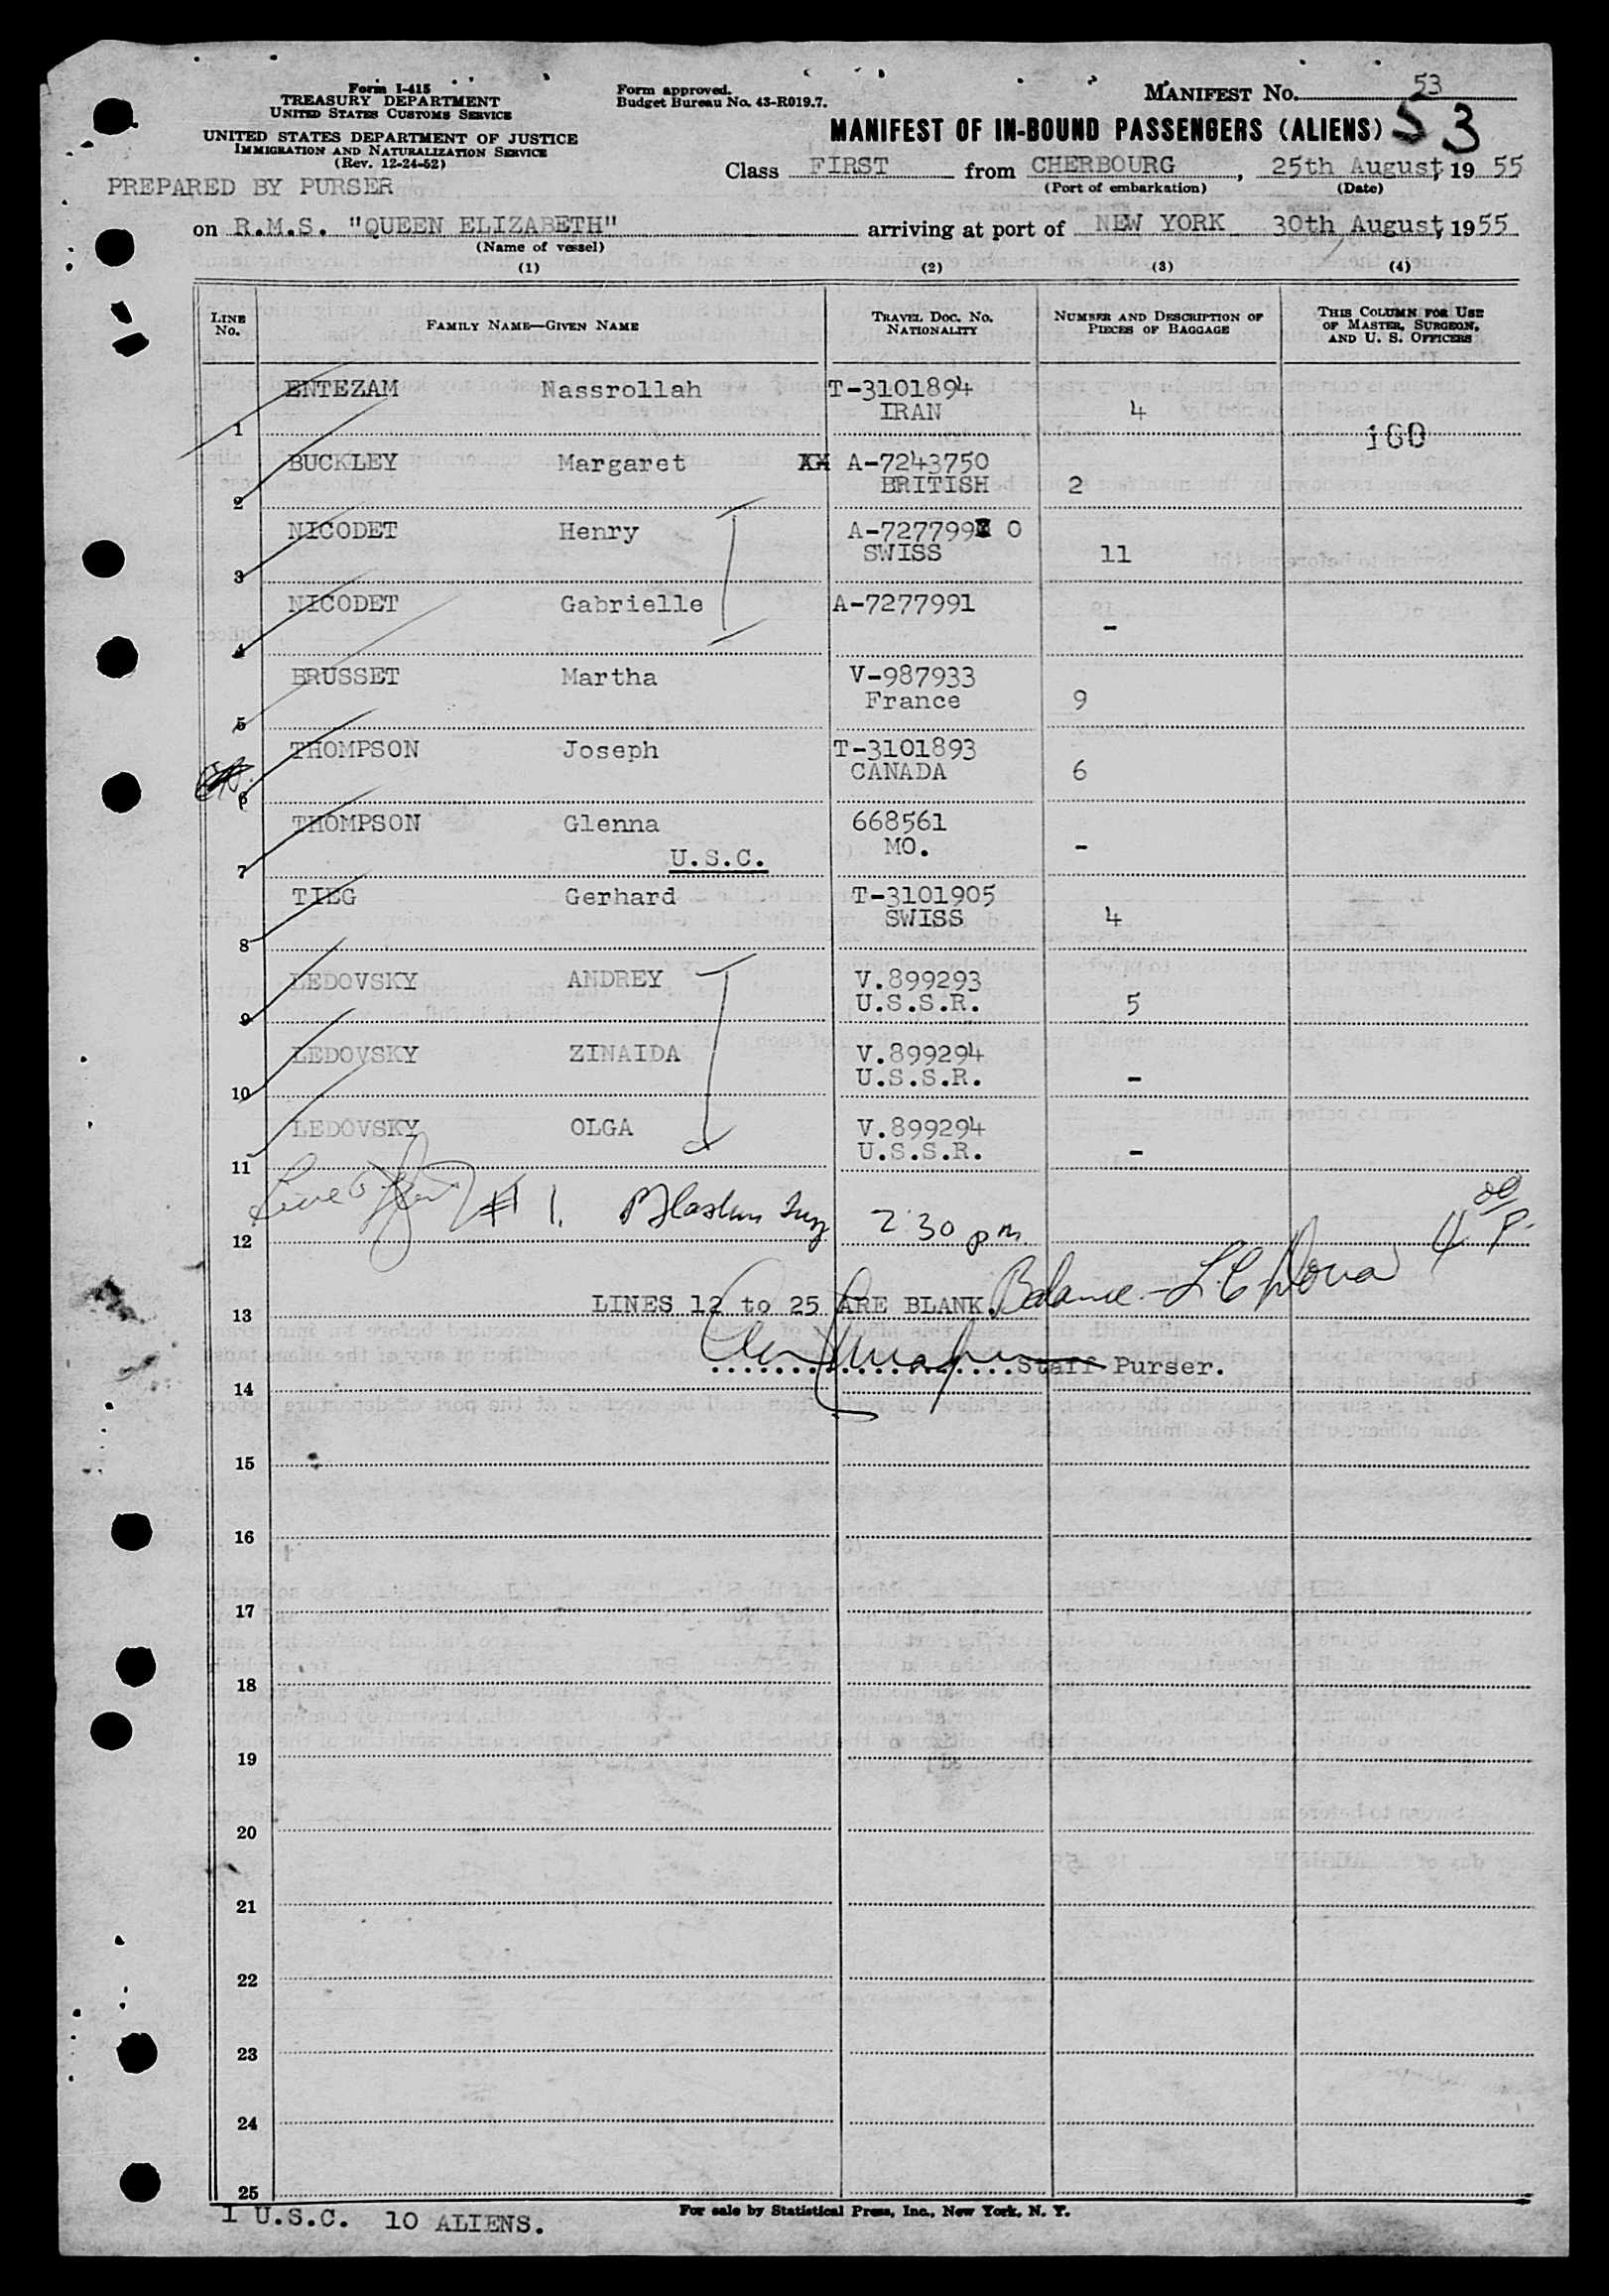 Form I-415
TREASURY DEPARTMENT
UNITED STATES CUSTOMS SERVICE
UNITED STATES DEPARTMENT OF JUSTICE
IMMIGRATION AND NATURALIZATION SERVICE
(Rev. 12-24-52)
PREPARED BY PURSER
Form approved.
Budget Bureau No. 43-R019.7.
MANIFEST No. 53
MANIFEST OF IN-BOUND PASSENGERS (ALIENS) 53
Class FIRST from CHERBOURG, 25th August, 19 55
(Port of embarkation) (Date)
on R.M.S. "QUEEN ELIZABETH" arriving at port of NEW YORK 30th August, 1955
(Name of vessel)
(1) (2) (3) (4)
LINE No. FAMILY NAME—GIVEN NAME TRAVEL DOC. NO. NATIONALITY NUMBER AND DESCRIPTION OF PIECES OF BAGGAGE THIS COLUMN FOR USE OF MASTER, SURGEON, AND U. S. OFFICERS
ENTEZAM Nassrollah T-3101894
1 IRAN 4
100
BUCKLEY Margaret XX A-7243750
2 BRITISH 2
NICODET Henry A-727799 0
3 SWISS 11
NICODET Gabrielle A-7277991
4 -
BRUSSET Martha V-987933
5 France 9
THOMPSON Joseph T-3101893
6 CANADA 6
THOMPSON Glenna 668561
MO. -
7 U.S.C.
TIEG Gerhard T-3101905
8 SWISS 4
LEDOVSKY ANDREY V.899293
9 U.S.S.R. 5
LEDOVSKY ZINAIDA V.899294
10 U.S.S.R. -
LEDOVSKY OLGA V.899294
11 U.S.S.R. -
# 1. 2:30 pm
12
Balance
13 LINES 12 to 25 ARE BLANK.
Staff Purser.
14
15
16
17
18
19
20
21
22
23
24
25
1 U.S.C. 10 ALIENS.
For sale by Statistical Press, Inc., New York, N. Y.